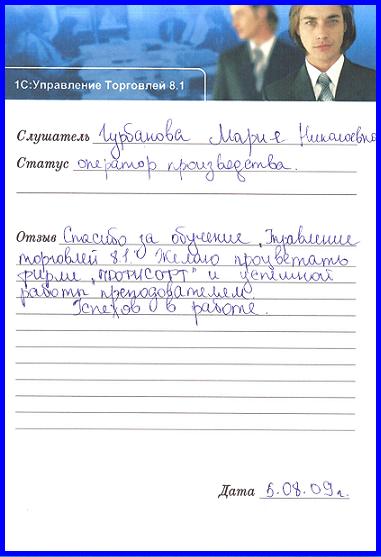 1С:Управление Торговлей 8.1
Слушатель Курбанова Марие Николаевна
Статус оператор произведства.
Отзыв Спасибо за обучение „Управление
торговлей 8.1." Желаю процветать
фирме и успешной
работы преподователем.
Успехов в работе.
Дата 5.08.09г.